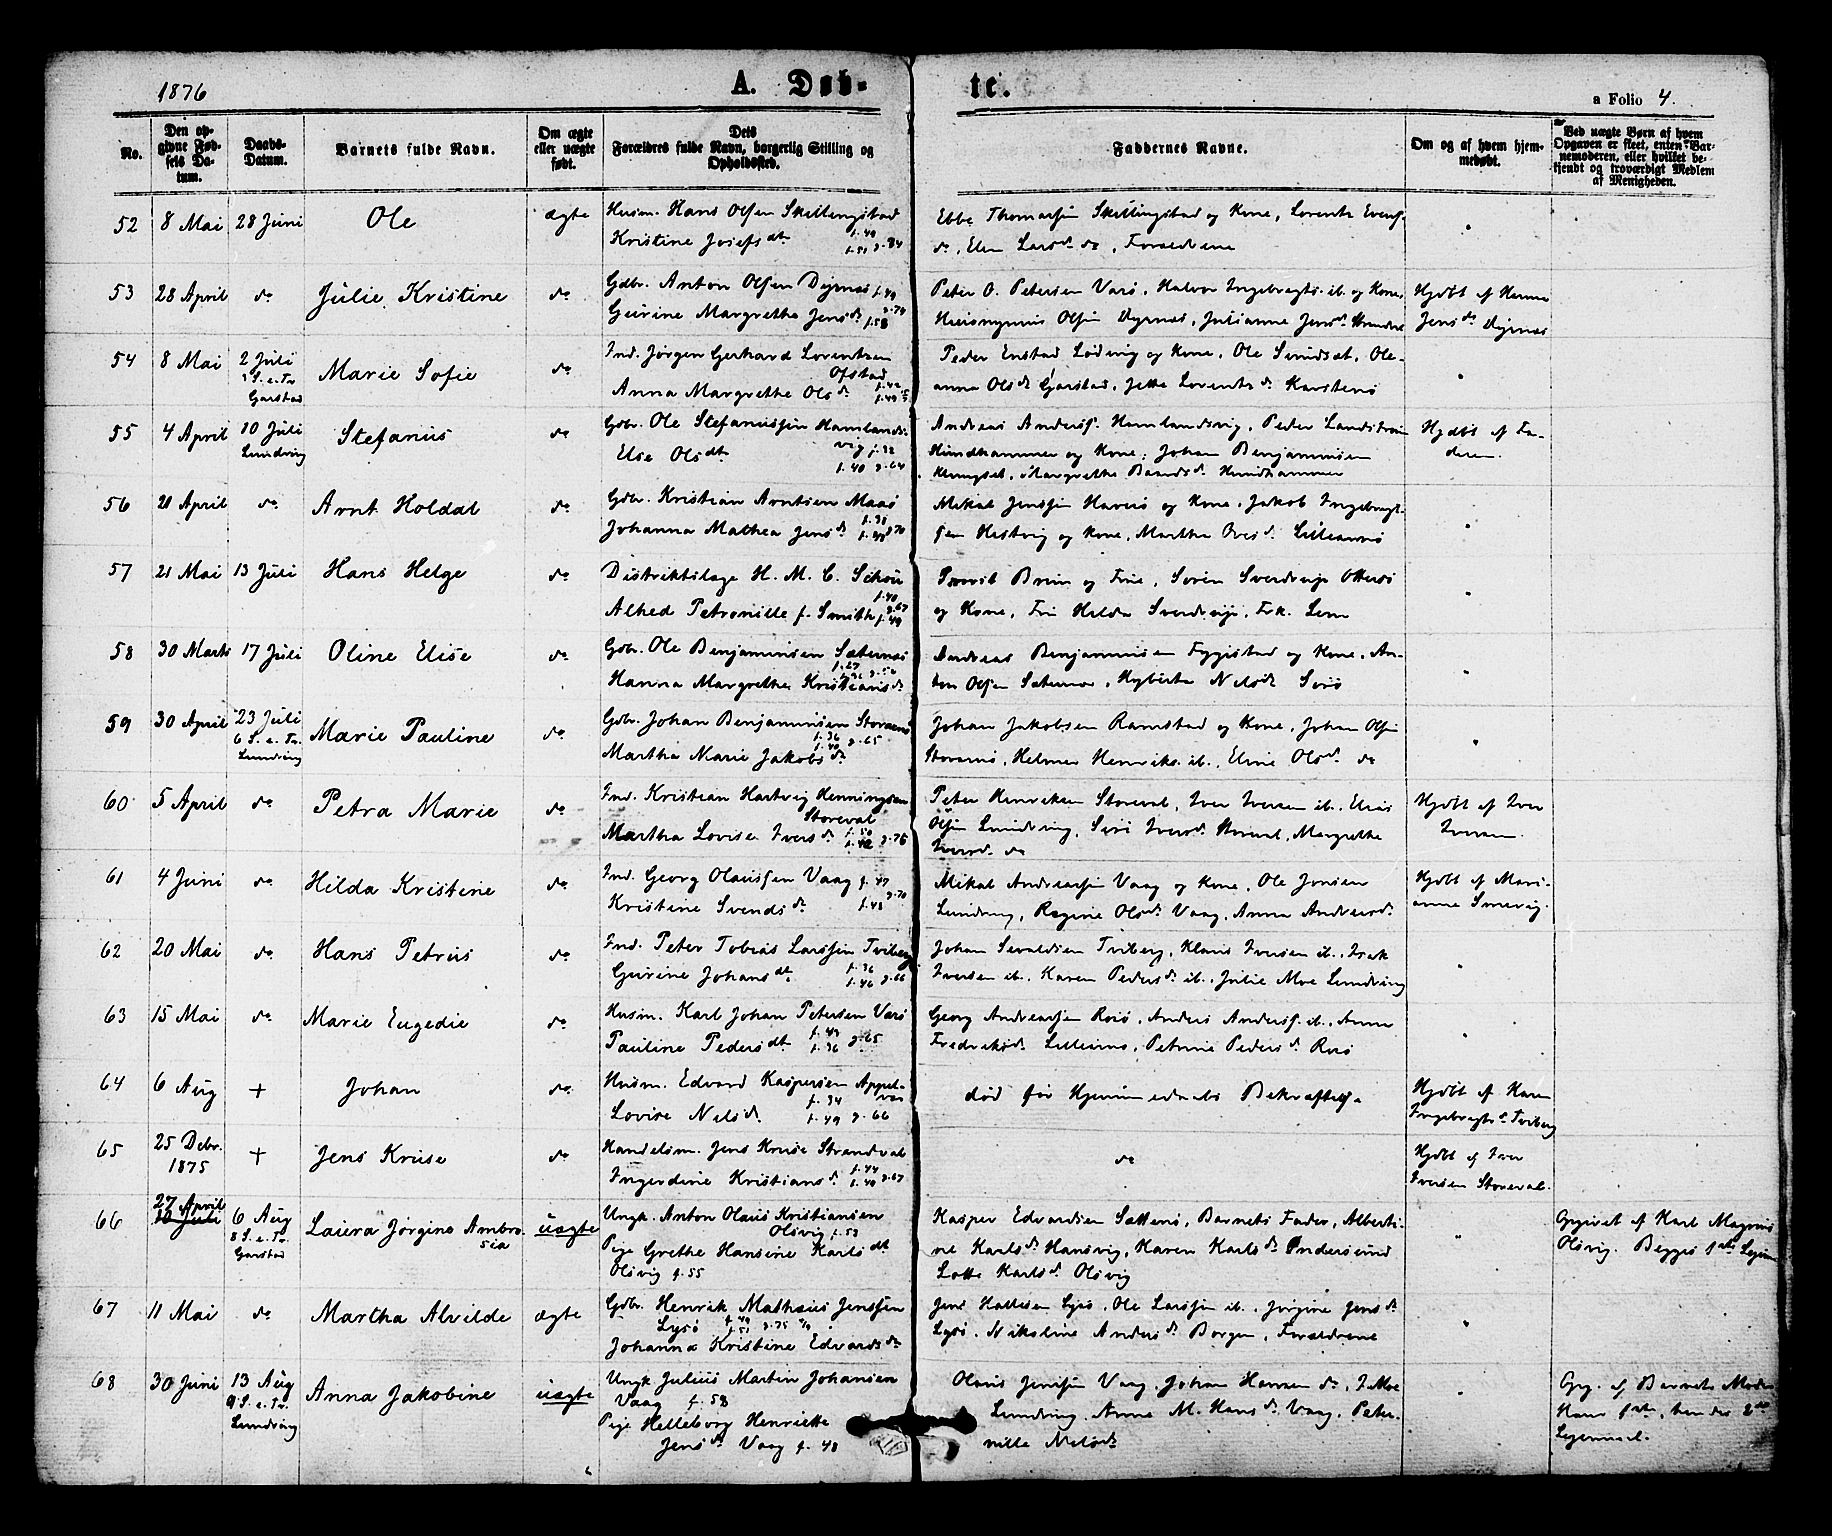 1876 A. Døb- te. a Folio 4.
No. Den opgivne Fødsels Datum. Daabs-Datum. Barnets fulde Navn. Om ægte eller uægte født. Forældres fulde Navn, borgerlig Stilling og Opholdssted. Faddernes Navne. Om og af hvem hjemmedøbt. Ved uægte Børn af hvem Opgaven er skeet, enten Barnemoderen, eller hvilket bekjendt og troværdigt Medlem af Menigheden.
52 8 Mai 28 Juni Ole ægte Husm. Hans Olsen Skillingstad
Kristine Josefsdt
Ebbe Thomassen Skillingstad og Kone, Lorents
do, Elen Larsd. do, Forældrene
53 28 April do Julie Kristine do Gdbr. Anton Olsen Dyrnæs f. 49
Gurine Margrethe Jensd. f. 58
Peter O. Petersen Varø, Halvor Ingebrigts. ib. og Kone,
Hieronymus Olsen Dyrnæs, Julianne Jensd.
Hjdøbt af Hanna
Jensd. Dyrnæs
54 8 Mai 2 Juli
Garstad
Marie Sofie do Ind. Jørgen Gerhard Lorentsen
Ofstad
Anna Margrethe Olsd.
Peder Enstad Lødning og Kone, Ole Smidset, Ole-
anna Olsd. Garstad, Jette Lorentsd. Karstenø
55 4 April 10 Juli
Lundring
Stefanius do Gdbr. Ole Stefanussen Hamlands-
vig f. 32
Else Olsdt f. 40 g. 64
Andreas Anders. Hamlandsvig, Peder Landstrøm
Hundhammer og Kone, Johan Benjaminsen
Margrethe Hundhammer
Hjdøbt af Fa-
deren.
56 21 April do Arnt Holdal do Gdbr. Kristian Arntsen Maasø
Johanna Mathea Jensd.
Mikal Jenssen Haverø og Kone, Jakob Ingebrigt-
sen Hestvig og Kone, Martha
57 21 Mai 13 Juli Hans Helge do Distriktslæge H. M. C. Schou
f. 40
Alhed Petronille f. Smith f. 49 g. 67
Provst Brun og Frue, Søren Sverdrup Otterø
og Kone, Fru Hilda Sverdrup, Frk. Lem
58 30 Marts 17 Juli Oline Elise do Gdbr. Ole Benjaminsen Sæternæs
Hanna Margrethe Kristiansd.
Andreas Benjaminsen og Kone, An-
ton Olsen Sæternæs, Nelsd. Sørø
59 30 April 23 Juli
6 S. e. Tr.
Lundring
Marie Pauline do Gdbr. Johan Benjaminsen
f. 36
Martha Marie Jakobsd. f. 40 g. 65
Johan Jakobsen Ramstad og Kone, Johan Olsen
Helmer Henriks. ib., Elene Olsd. do
60 5 April do Petra Marie do Ind. Kristian Hartvig Henningsen
Storeval
Martha Lovise Iversd.
Peter Henriksen Storeval, Iver Iversen ib., Elias
Olsen Lundring, Siri Iversd. Storeval, Margrethe
Iversd. do
Hjdøbt af Iver
Iversen.
61 4 Juni do Hilda Kristine do Ind. Georg Olaussen Vaag f. 47
Kristine Svendsd. f. 48 g. 70
Mikal Andreassen Vaag og Kone, Ole Jonsen
Lundring, Regine Olsd. Vaag, Anna Andreasd.
Hjdøbt af Mari-
anne Smevig.
62 20 Mai do Hans Petrus do Ind. Peter Tobias Larssen Tviberg
f. 36
Gurine Johansdt f. 46 g. 66
Johan Sevaldsen Tviberg, Klaus Iversen ib., Isak
Iversen ib., Karen Pedersd. ib., Julie Moe Lundring
63 15 Mai do Marie Eugedie do Husm. Karl Johan Petersen Varø
Pauline Pedersdt f. 36 g. 65
Georg Andreassen Rosø, Anders Anders. ib., Anna
Fredriksd. Petrine Pedersd. Rosø
64 6 Aug + Johan do Husm. Edvard Kaspersen Appel-
vær f. 34
Lovise Nelsd. f. 49 g. 66
død før Hjemmedaabs Bekræftelse
Hjdøbt af Karen
Ingebrigtsd. Tviberg
65 25 Debr.
1875
+ Jens Kruse do Handelsm. Jens Kruse Strandval
f. 44
Ingerdine Kristiansd. f. 40 g. 67
do
Hjdøbt af Iver
Iversen Storeval.
66 27 April
10 Juli
6 Aug
8 S. e. Tr.
Garstad
Laura Jørgine Ambro-
sia
uægte Ungk. Anton Olaus Kristiansen
Olsvig f. 53
Pige Grethe Hansine Karlsdt
Olsvig f. 55
Kasper Edvardsen Sætternø, Barnets Fader, Alberti-
ne Karlsd. Hansvig, Karen Karlsd. Indersund
Lotte Karlsd. Olsvig
Opgivet af Karl Magnus
Olsvig. Begges 1ste Leierm.
67 11 Mai do Martha Alvilde ægte Gdbr. Henrik Mathæus Jenssen
Lysø
Johanna Kristine Edvardsd.
Jens Lysø, Ole Larssen ib., Jørgine Jensd.
Lysø, Nikoline Andersd. Borgan, Forældrene
68 30 Juni 13 Aug
9 S. e. Tr.
Lundring
Anna Jakobine uægte Ungk. Julius Martin Johansen
Vaag f. 53
Pige Helleborg Henriette
Jensd. Vaag f. 48
Olaus Jenssen Vaag, Johan Hansen do, I. Moe
Lundring, Anne M. Hansd. Vaag, Peter-
nille Nelsd.
Opg. af Barnets Moder
Hans 1ste, hendes 2de
Leiermaal.